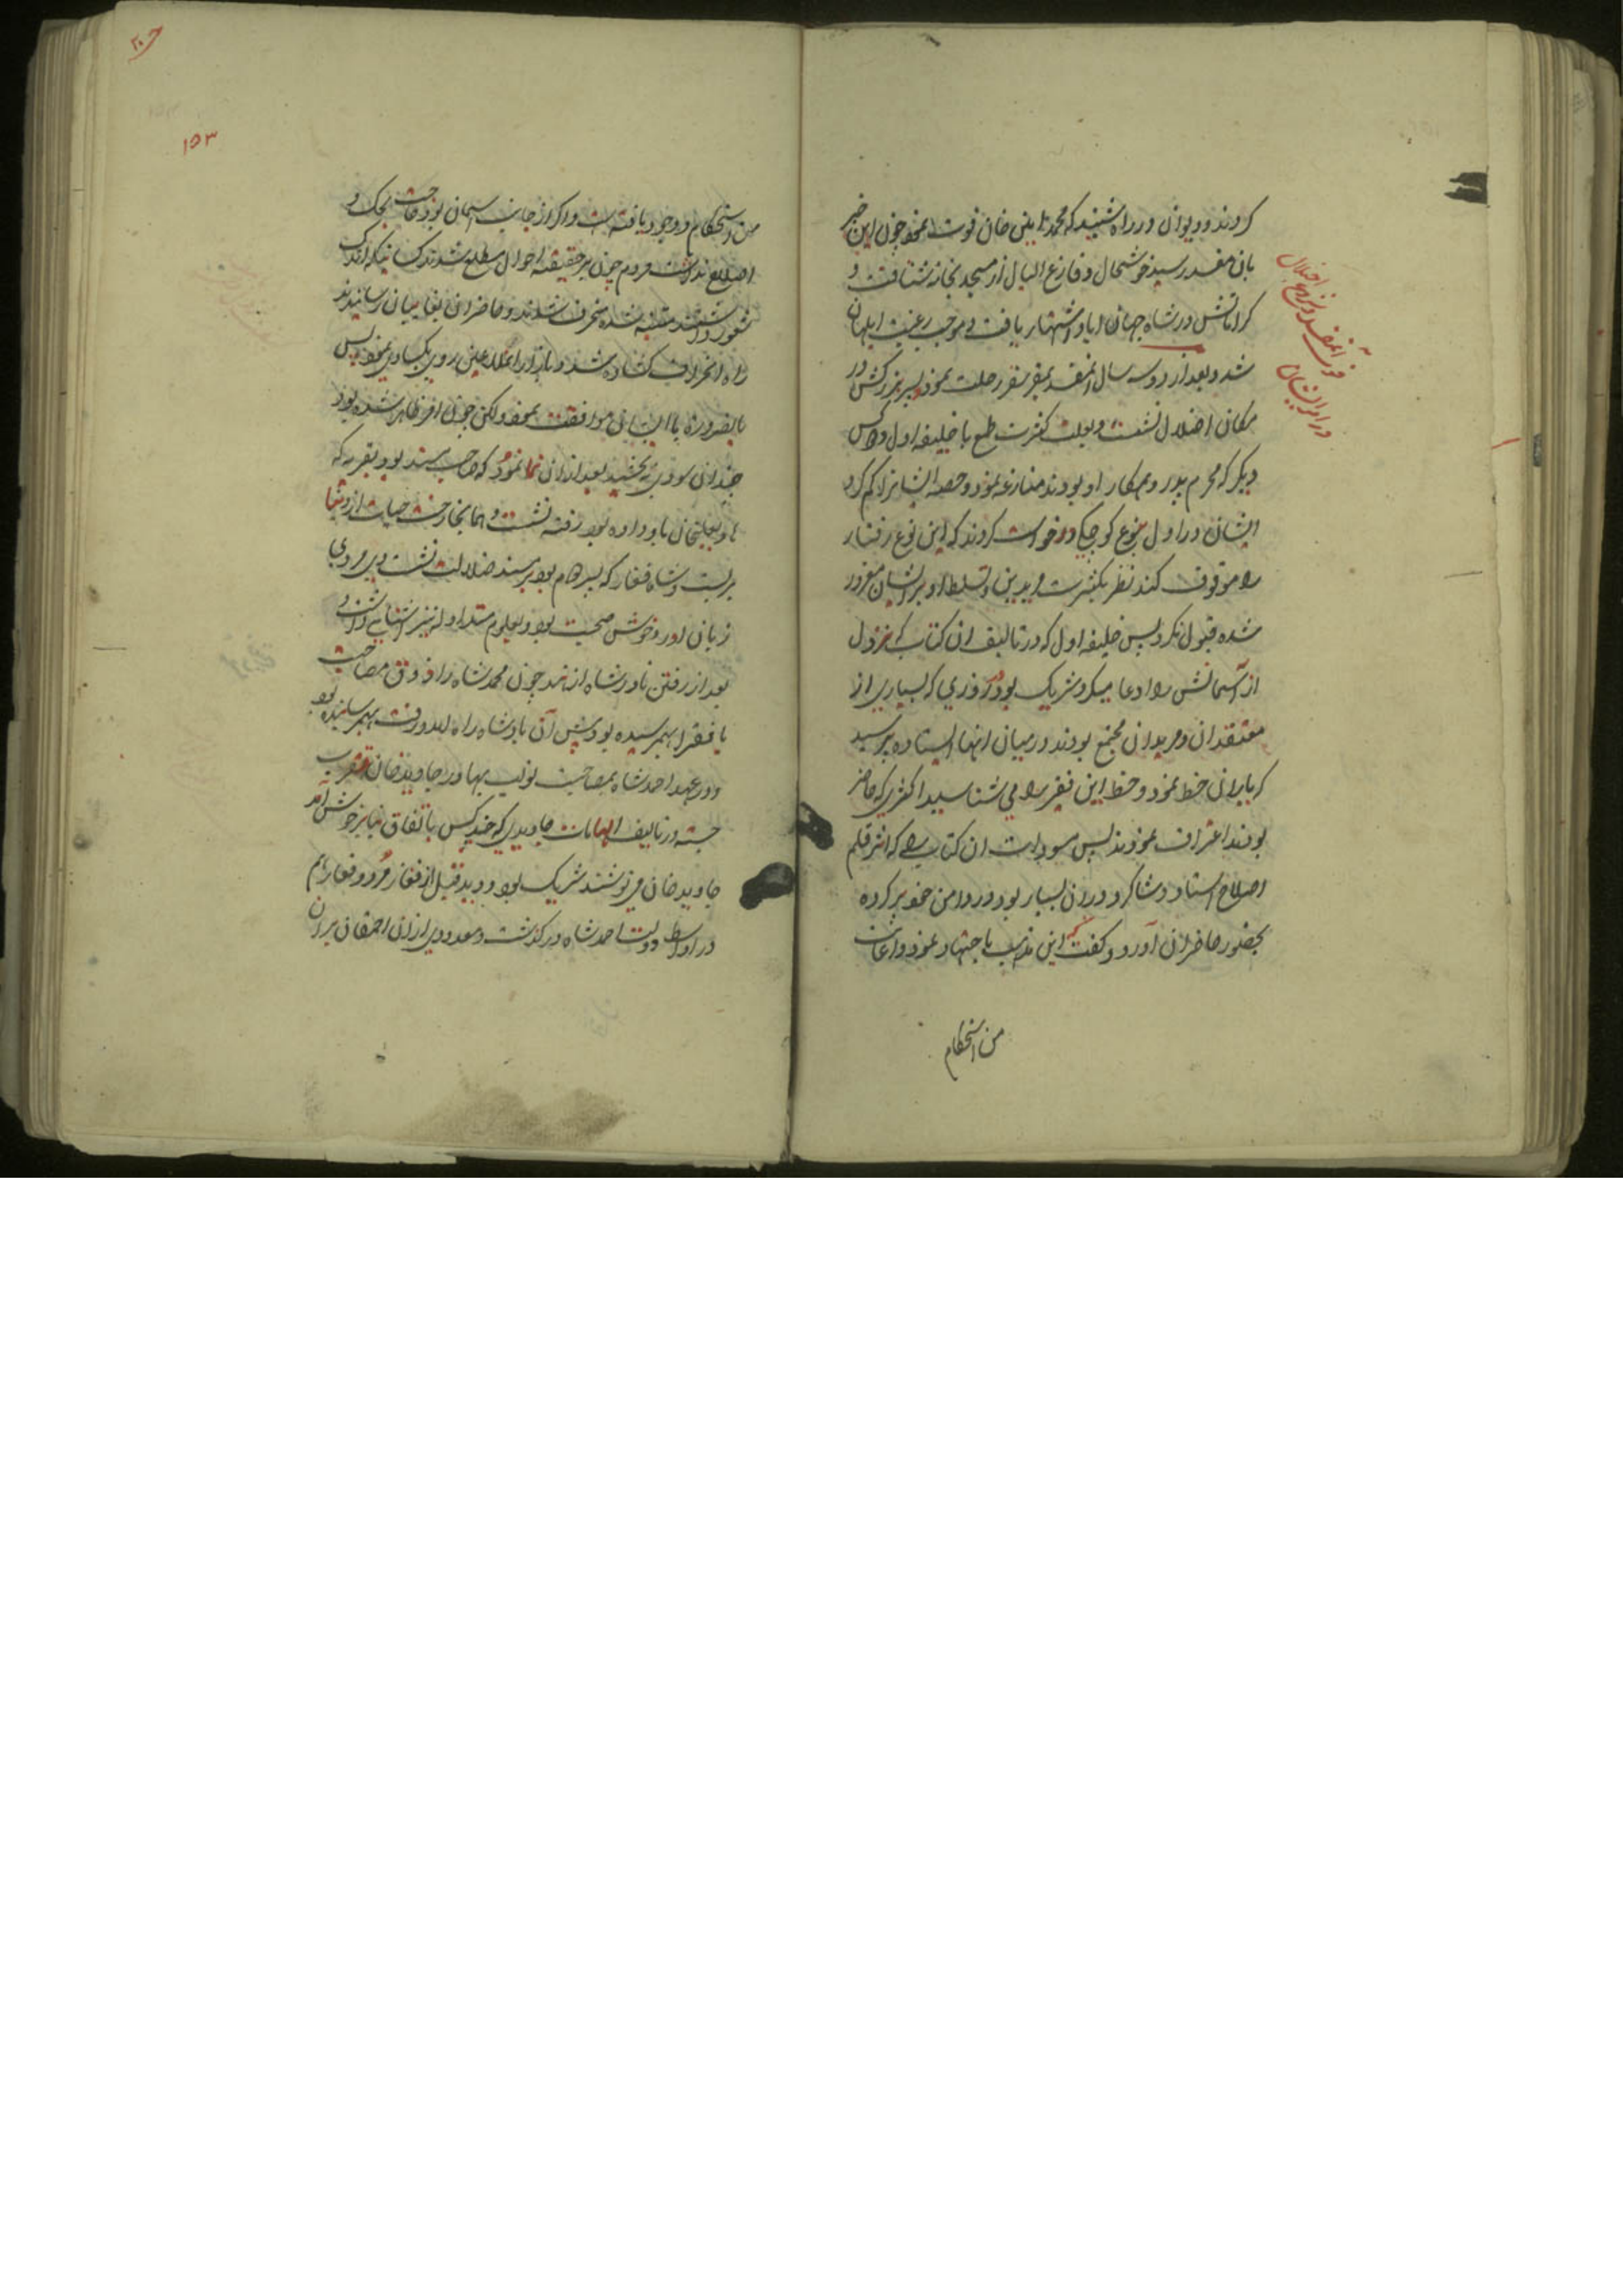 کردند و دیوان در راه شنید که محمد امین خان فوت نمود چون این خبر
بان مفسد رسید خوشحال و فارغ البال از مسجد بخانه شتافت و
کراماتش در شاه جهان اباد اشتهار یافت و موجب رغبت ابلهان
شد و بعد از دو سه سال انمفسد بمقر سقر رحلت نمود پسر بزرگش در
مکان اضلال نشست و بعلت کثرت طمع با خلیفه اول و کس
دیگر که محرم پدر و همکار او بودند منازعه نمود و حصه ایشانرا کم کرد
ایشان در اول بنوع کوچکی درخواست کردند که این نوع رفتار
را موقوف کند نظر بکثرت مریدین و تسلط او بر ایشان مغرور
شده قبول نکرد پس خلیفه اول که در تالیف ان کتاب که نزول
از آسمانش را ادعا میکرد شریک بود در روزی که بسیاری از
معتقدان و مریدان مجتمع بودند در میان انها ایستاده پرسید
که یاران خط نمود و خط این فقیر را می شناسید اکثری که حاضر
بودند اعتراف نمودند پس مسودات ان کتاب را که اثر قلم
اصلاح استاد و شاگرد در ان بسیار بود در دامن خود پر کرده
بحضور حاضران آورد و گفت که این مذهب باجتهاد نمود و اعانت
من استحکام
فوت انمفسد و نزاع اضلال
در امر ایشان
۱۵۳
من و استحکام و وجود یافته است و اگر از جانب اسمان بود حاجت بحک و
اصلاح نداشت مردم چون بر حقیقت احوال مطلع شدند کسانیکه اندک
شعور داشتند متنبه شده منحرف شدند و حاضران بغایبان رسانیدند
راه انحراف گشاده شد و بازار اعلا عین روی بکسادی نمود پس
بالضروره با ایشان موافقت نمود و لکن چون امر ظاهر شده بود
چندان سودی نبخشید بعد از ان نما نمود که صاحب مسند بود بقریه که
هدایتخان باو داده بود رفته نشست و انجا رخت حیات از دنیا
بربست و شاه فغار که پسر دوم بود بر مسند ضلالت نشست وی مردی
زبان اور و خوش صحبت بود و بعلوم متداوله نیز اشنایی داشت و
بعد از رفتن نادر شاه از هند چون محمد شاه را ذوق مصاحبت
با فقرا بهمرسیده بود پیش آن پادشاه راه امد و رفت بهمرسانیده بود
و در عهد احمد شاه بمصاحبت نواب بهادر جاوید خان تقرب
جسته در تالیف الهامات جاویدی که چند کس باتفاق بنابر خوش آمد
جاوید خان می نوشتند شریک بود و دید قبل از فغار مرد و فغار هم
در اواسط دولت احمد شاه درگذشت و معدودی از ان احمقان بران